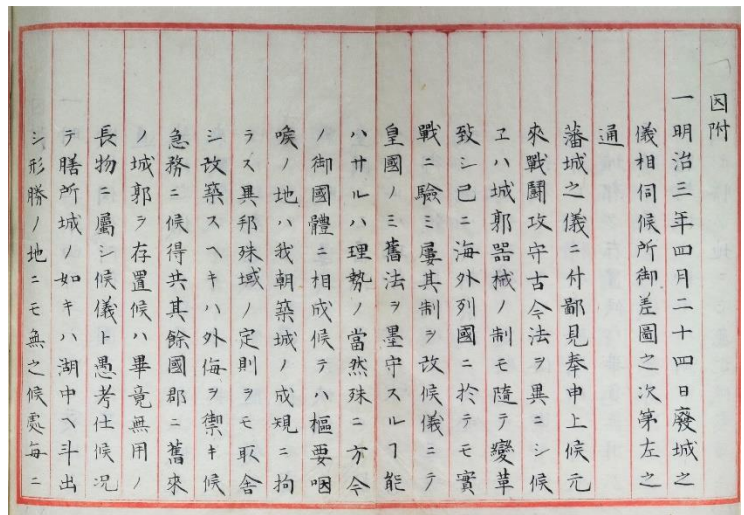 因附
一明治三年四月二十四日廢城之
儀相伺候所御差圖之次第左之
通
藩城之儀ニ付鄙見奉申上候元
來戰鬪攻守古今法ヲ異ニシ候
ヱハ城郭器械ノ制モ隨テ變革
致シ已ニ海外列國ニ於テモ實
戰ニ驗ミ屢其制ヲ改候儀ニテ
皇國ノミ舊法ヲ墨守スルヿ能
ハサルハ理勢ノ當然殊ニ方今
ノ御國體ニ相成候テハ樞要咽
喉ノ地ハ我朝築城ノ成規ニ拘
ラス異邦殊域ノ定則ヲモ取舎
シ改築スヘキハ外侮ヲ禦キ候
急務ニ候得共其餘國郡ニ舊來
ノ城郭ヲ存置候ハ畢竟無用ノ
長物ニ屬シ候儀ト愚考仕候况
テ膳所城ノ如キハ湖中ヘ斗出
シ形勝ノ地ニモ無之候處每ニ